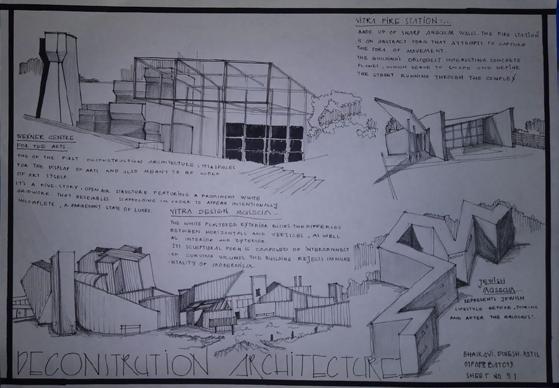 VITRA FIRE STATION...
MADE UP OF SHARP ANGULAR WALLS. THE FIRE STATION
IS AN ABSTRACT FORM THAT ATTEMPTS TO CAPTURE
THE FORM OF MOVEMENT.
THE BUILDINGS OBLIQUELY INTERSECTING CONCRETE
PLANES, WHICH SERVE TO SHAPE AND DEFINE
THE STREET RUNNING THROUGH THE COMPLEX
WEXNER CENTRE
FOR THE ARTS
ONE OF THE FIRST ARCHITECTURE
FOR THE DISPLAY OF ARTS AND ALSO MEANT TO BE WORK
OF ART ITSELF
IT'S A FIVE-STORY, OPEN AIR STRUCTURE FEATURING A PROMINENT WHITE
GRIDWORK THAT RESEMBLES SCAFFOLDING IN ORDER TO APPEAR INTENTIONALLY
INCOMPLETE, A PERMANENT STATE OF
VITRA DESIGN MUSEUM..
THE WHITE PLASTERED EXTERIOR BLURS THE DIFFERENCES
BETWEEN HORIZONTALS AND VERTICLES, AS WELL
AS INTERIOR AND EXTERIOR.
ITS SCULPTURAL FORM IS COMPOSED OF INTERCONNECT
OF CURVING VOLUMES THE BUILDING REJECTS
OF MODERNISM.
JEWISH
MUSEUM
REPRESENTS JEWISH
LIFESTYLE BEFORE, DURING
AND AFTER THE HOLOCAUST.
DECONSTRUTION ARCHITECTURE
BHAIRAVI. DINESH. PATIL
SHEET NO 3.1